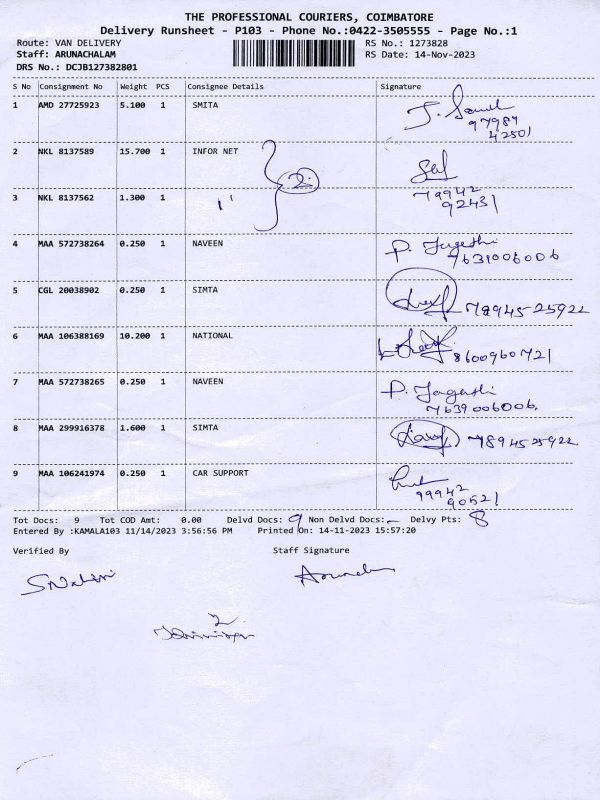 THE PROFESSIONAL COURIERS, COIMBATORE
Delivery Runsheet - P103 - Phone No.:0422-3505555 - Page No.:1
Route: VAN DELIVERY RS No.: 1273828
Staff: ARUNACHALAM RS Date: 14-Nov-2023
DRS No.: DCJB127382801
S No Consignment No Weight PCS Consignee Details Signature
1 AMD 27725923 5.100 1 SMITA
97989
42501
2 NKL 8137589 15.700 1 INFOR NET
2
79942
92431
3 NKL 8137562 1.300 1 "
4 MAA 572738264 0.250 1 NAVEEN P. Jageshi
7631006006
5 CGL 20038902 0.250 1 SIMTA 78945-25922
6 MAA 106388169 10.200 1 NATIONAL 8600960721
7 MAA 572738265 0.250 1 NAVEEN P. Jageshi
7639006006.
8 MAA 299916378 1.600 1 SIMTA 7894525922
9 MAA 106241974 0.250 1 CAR SUPPORT
99942
90521
Tot Docs: 9 Tot COD Amt: 0.00 Delvd Docs: 9 Non Delvd Docs: - Delvy Pts: 8
Entered By :KAMALA103 11/14/2023 3:56:56 PM Printed On: 14-11-2023 15:57:20
Verified By Staff Signature